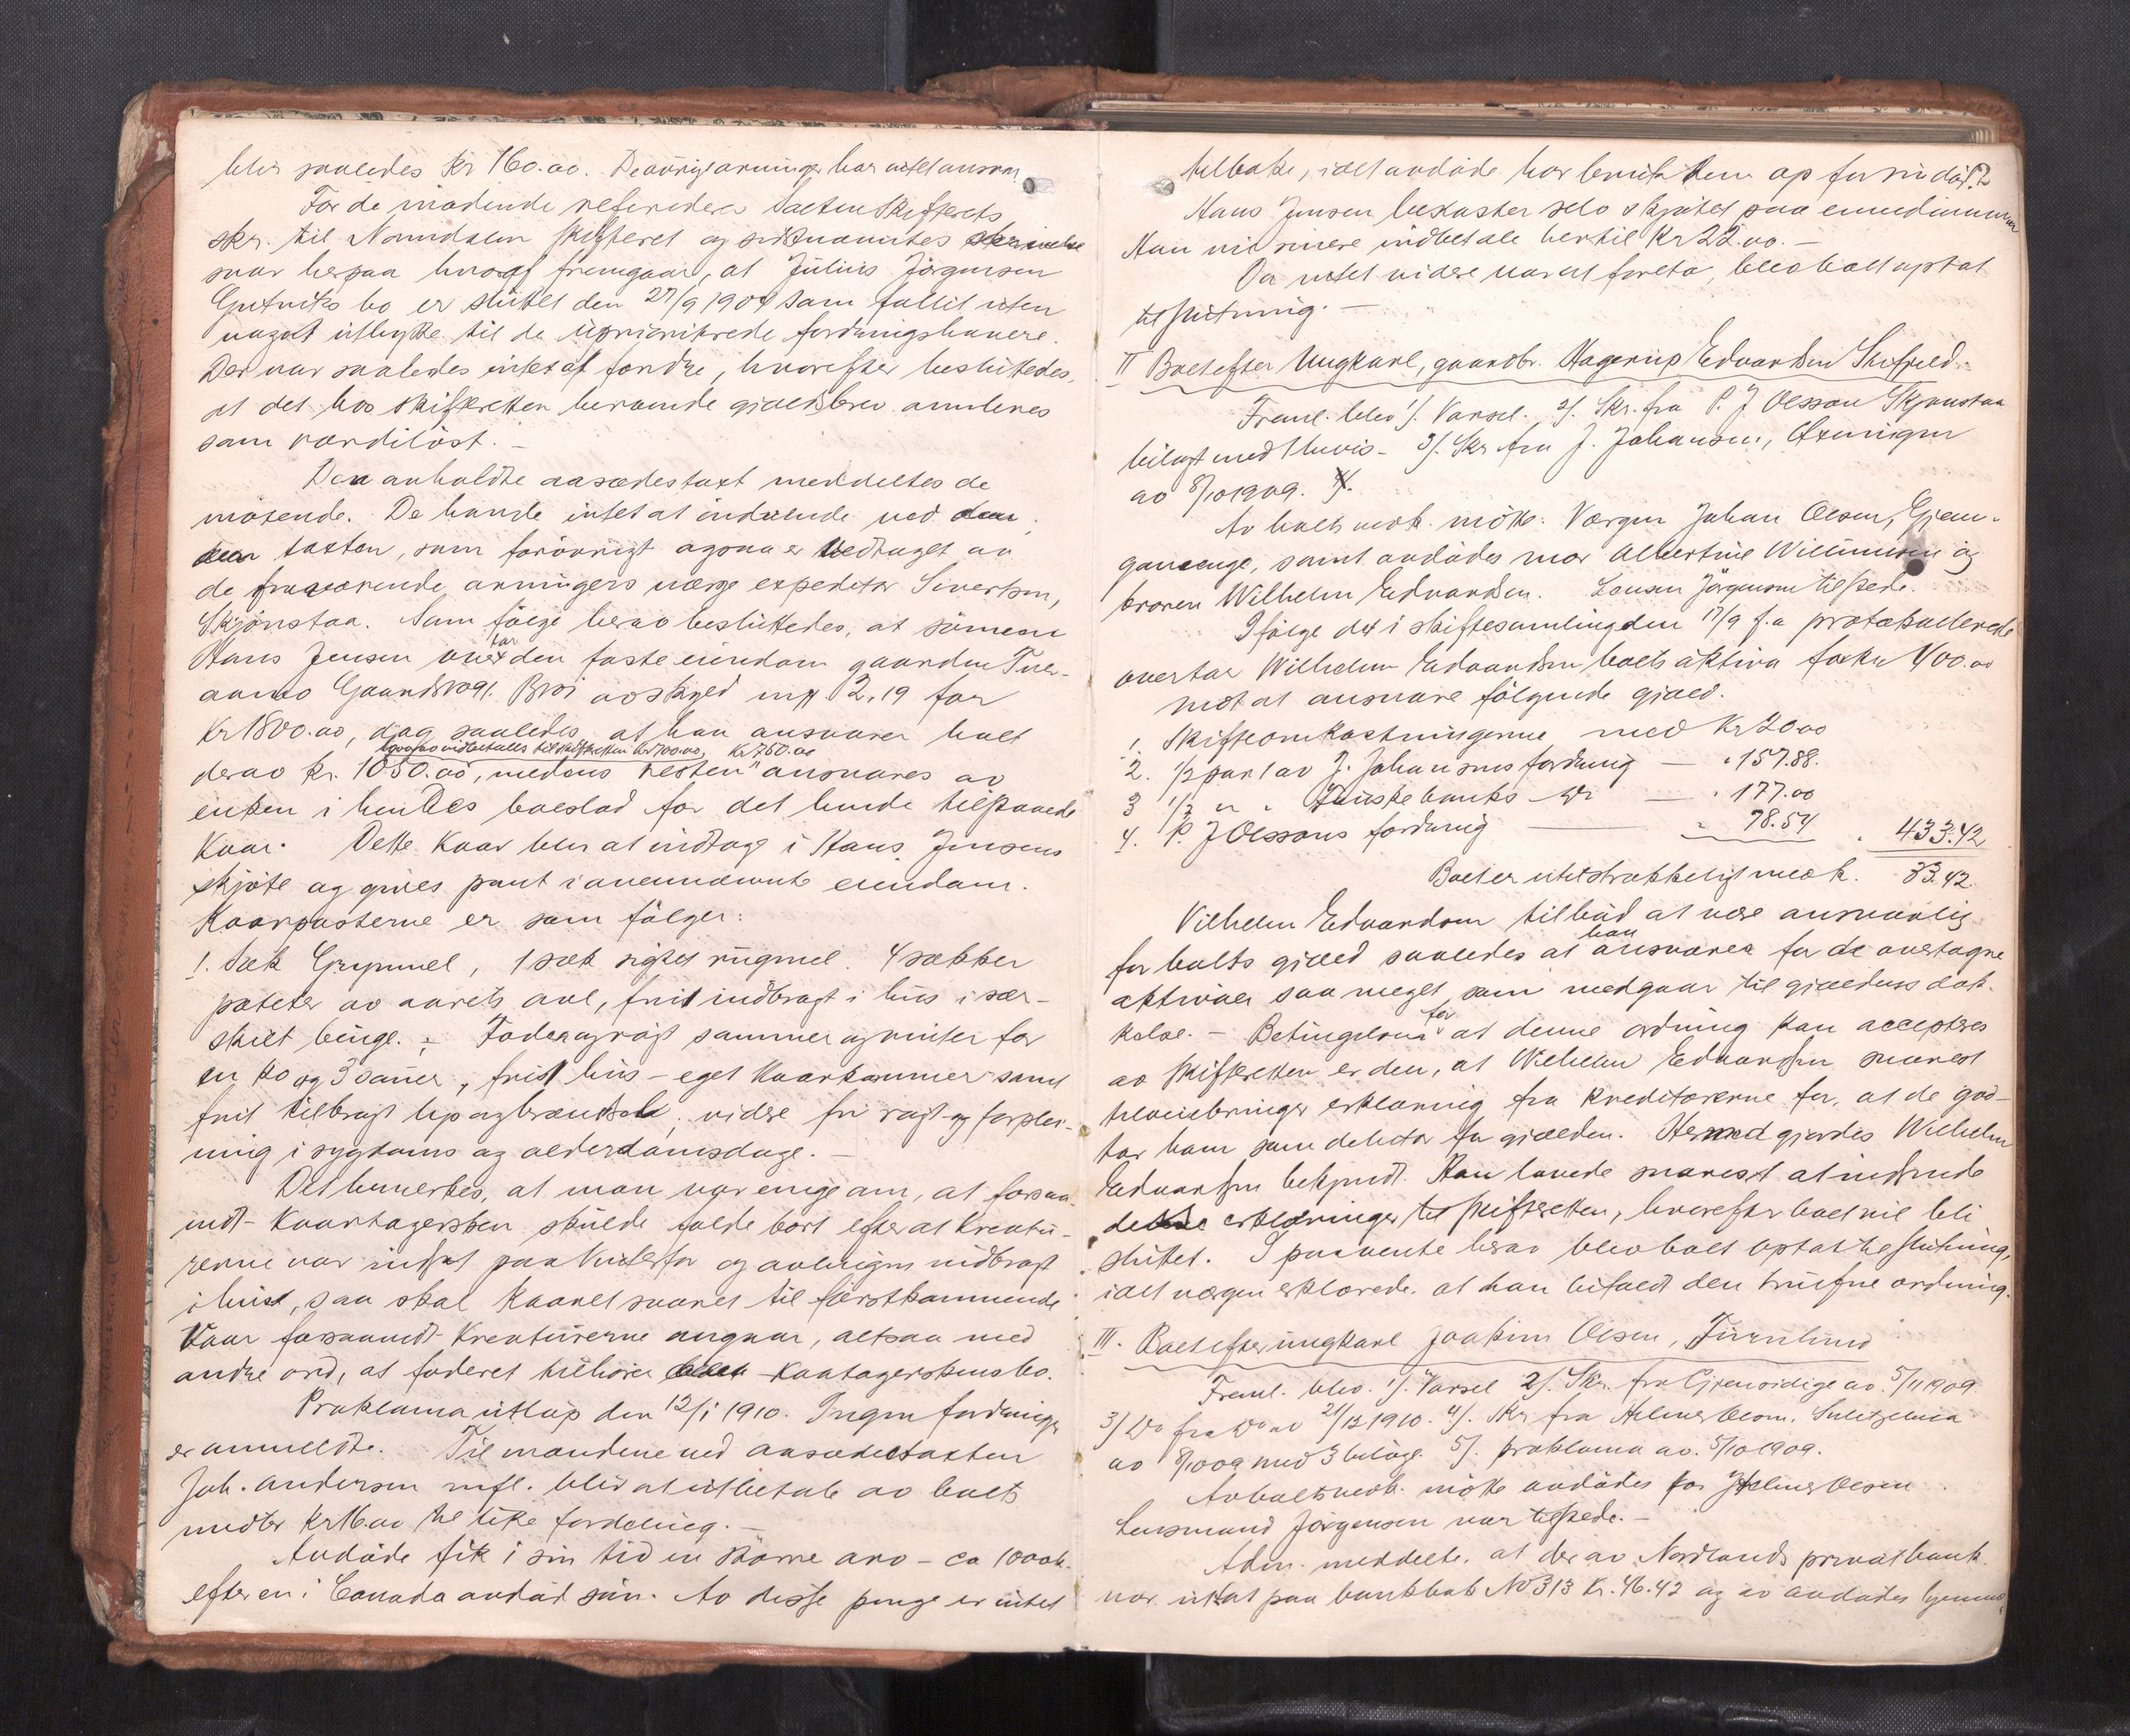 blir saaledes kr 160.00. De øvrige arvinger har intet ansvar
For de mødende refereredes Salten Skifterets
skr. til Namdalen skifteret og sidstnævntes
svar herpaa hvoraf fremgaar, at Julius Jörgensen
bo er sluttet den 27/9 1904 som fallit uten
noget utbytte til de uprioriterede fordringshavere.
Der var saaledes intet at fordre, hvorefter besluttedes,
at det hos skifteretten beroende gjældsbrev ansees
som værdilöst. -
Den anholdte aasædestaxt meddeltes de
mötende. De havde intet at indvende ved
den taxten, som forövrigt ogsaa er vedtaget av
de fraværende arvingers værge expeditör Sivertsen,
Skjönstaa. Som fölge herav besluttedes, at sönnen
Hans Jensen overtar den faste eiendom gaarden
Gaardsvogt. Brói avskyld mrk 2,19 for
Kr 1800.00, dog saaledes at han ansvarer boet
hvorav indbetales til skifteretten Kr 700.00, Kr 750.00
derav kr. 1050.00, medens "resten" ansvares av
enken i hendes boeslod for det hende tilstaaede
Kaar. Dette kaar blir at indtage i Hans Jensens
skjöte og gives pant i ovennævnte eiendom.
Kaarposterne er som fölger:
1. Sæk Grypmel, 1 sæk sigtet rugmel. 4 sækker
poteter av aarets avl, frit indbragt i hus i sær-
skilt binge. - Foder og rögt sommer og vinter for
en ko og 3 sauer, frit hus - eget kaarkammer samt
frit tilbragt lys og brændsel, videre fri rögt og forplei-
ning i sygdoms og alderdomsdage. -
Det bemerkes, at man var enige om, at forsaa-
vidt Kaartagersken skulde falde bort efter at kreatu-
rerne var indsat paa Vinterfor og avlingen indbragt
i hus, saa skal kaaret svares til förstkommende
Vaar forsaavidt Kreaturerne angaar, altsaa med
andre ord, at foderet tilhörer Kaartagerskens bo.
Proklama utlöp den 12/1 1910. Ingen fordringer
er anmeldte. Til mændene ved aasædestaxten
Joh. Andersen mfl. blir at utbetale av boets
midler kr 16.00 til like fordeling. -
Avdöde fik i sin tid en större arv - ca 1000 kr.
efter en i Canada avdöd sön. Av disse penge er intet
tilbake, idet avdöde har brukt dem op för sin död.
Hans Jensen bekoster selv skjötet paa eiendommen
Han vil senere indbetale hertil Kr 22.00. -
Da intet videre var at foreta, blev boet optat
til slutning. -
II Boet efter Ungkarl, gaardbr. Hagerup Edvardsen
Freml. blev 1/. Varsel. 2/. Skr. fra P. J Olsson Skjönstaa
bilagt med 3/. Skr fra J. Johansen,
av 8/10 1909.
Av boets vedk. mötte: Værgen Johan Olsen,
samt avdödes mor Albertine og
broren Wilhelm Edvardsen. Lensm Jörgensen tilstede.
Ifölge det i skiftesamling den 17/9 f.a protokollerede
overtar Wilhelm Edvardsen boets aktiva for kr 400.00
mot at ansvare fölgende gjæld.
1. Skifteomkostningerne med Kr 20.00
2. 1/2 part av J. Johansens fordring — " 157.88.
3 1/2 " " Fauske banks do — " 177.00
4. P. J Olssons fordring — " 78.54 " 433.42
Boet er utilstrækkeligt med kr. 33.42.
Vilhelm Edvardsen tilböd at være ansvarlig
for boets gjæld saaledes at han ansvarer for de overtagne
aktiver saa meget, som medgaar til gjældens dæk-
kelse. - Betingelsen for at denne ordning kan accepteres
av skifteretten er den, at Wilhelm Edvardsen snarest
tilveiebringer erklæring fra kreditorerne for, at de god-
tar ham som debitor for gjælden. Hermed gjordes Wilhelm
Edvardsen bekjendt. Han lovede snarest at indsende
disse erklæringer til skifteretten, hvorefter boet vil bli
sluttet. I paavente herav blev boet optat til slutning,
idet værgen erklærede at han bifaldt den trufne ordning.
III. Boet efter ungkarl Joakim Olsen, Furulund
Freml. blev. 1/. Varsel 2/. Skr. fra Gjensidige av. 5/11 1909
3/ Do fra Do av 21/12 1910. 4/. Skr fra Helmer Olsen. Sulitjelma
av med 3 bilag. 5/. proklama av. 5/10 1909.
Av boets vedk. mötte avdödes far Helmer Olsen
Lensmand Jörgensen var tilstede. -
Adm. meddelte. at der av Nordlands privatbank
var uttat paa bankbok No 313 Kr. 46.42 og av avdödes